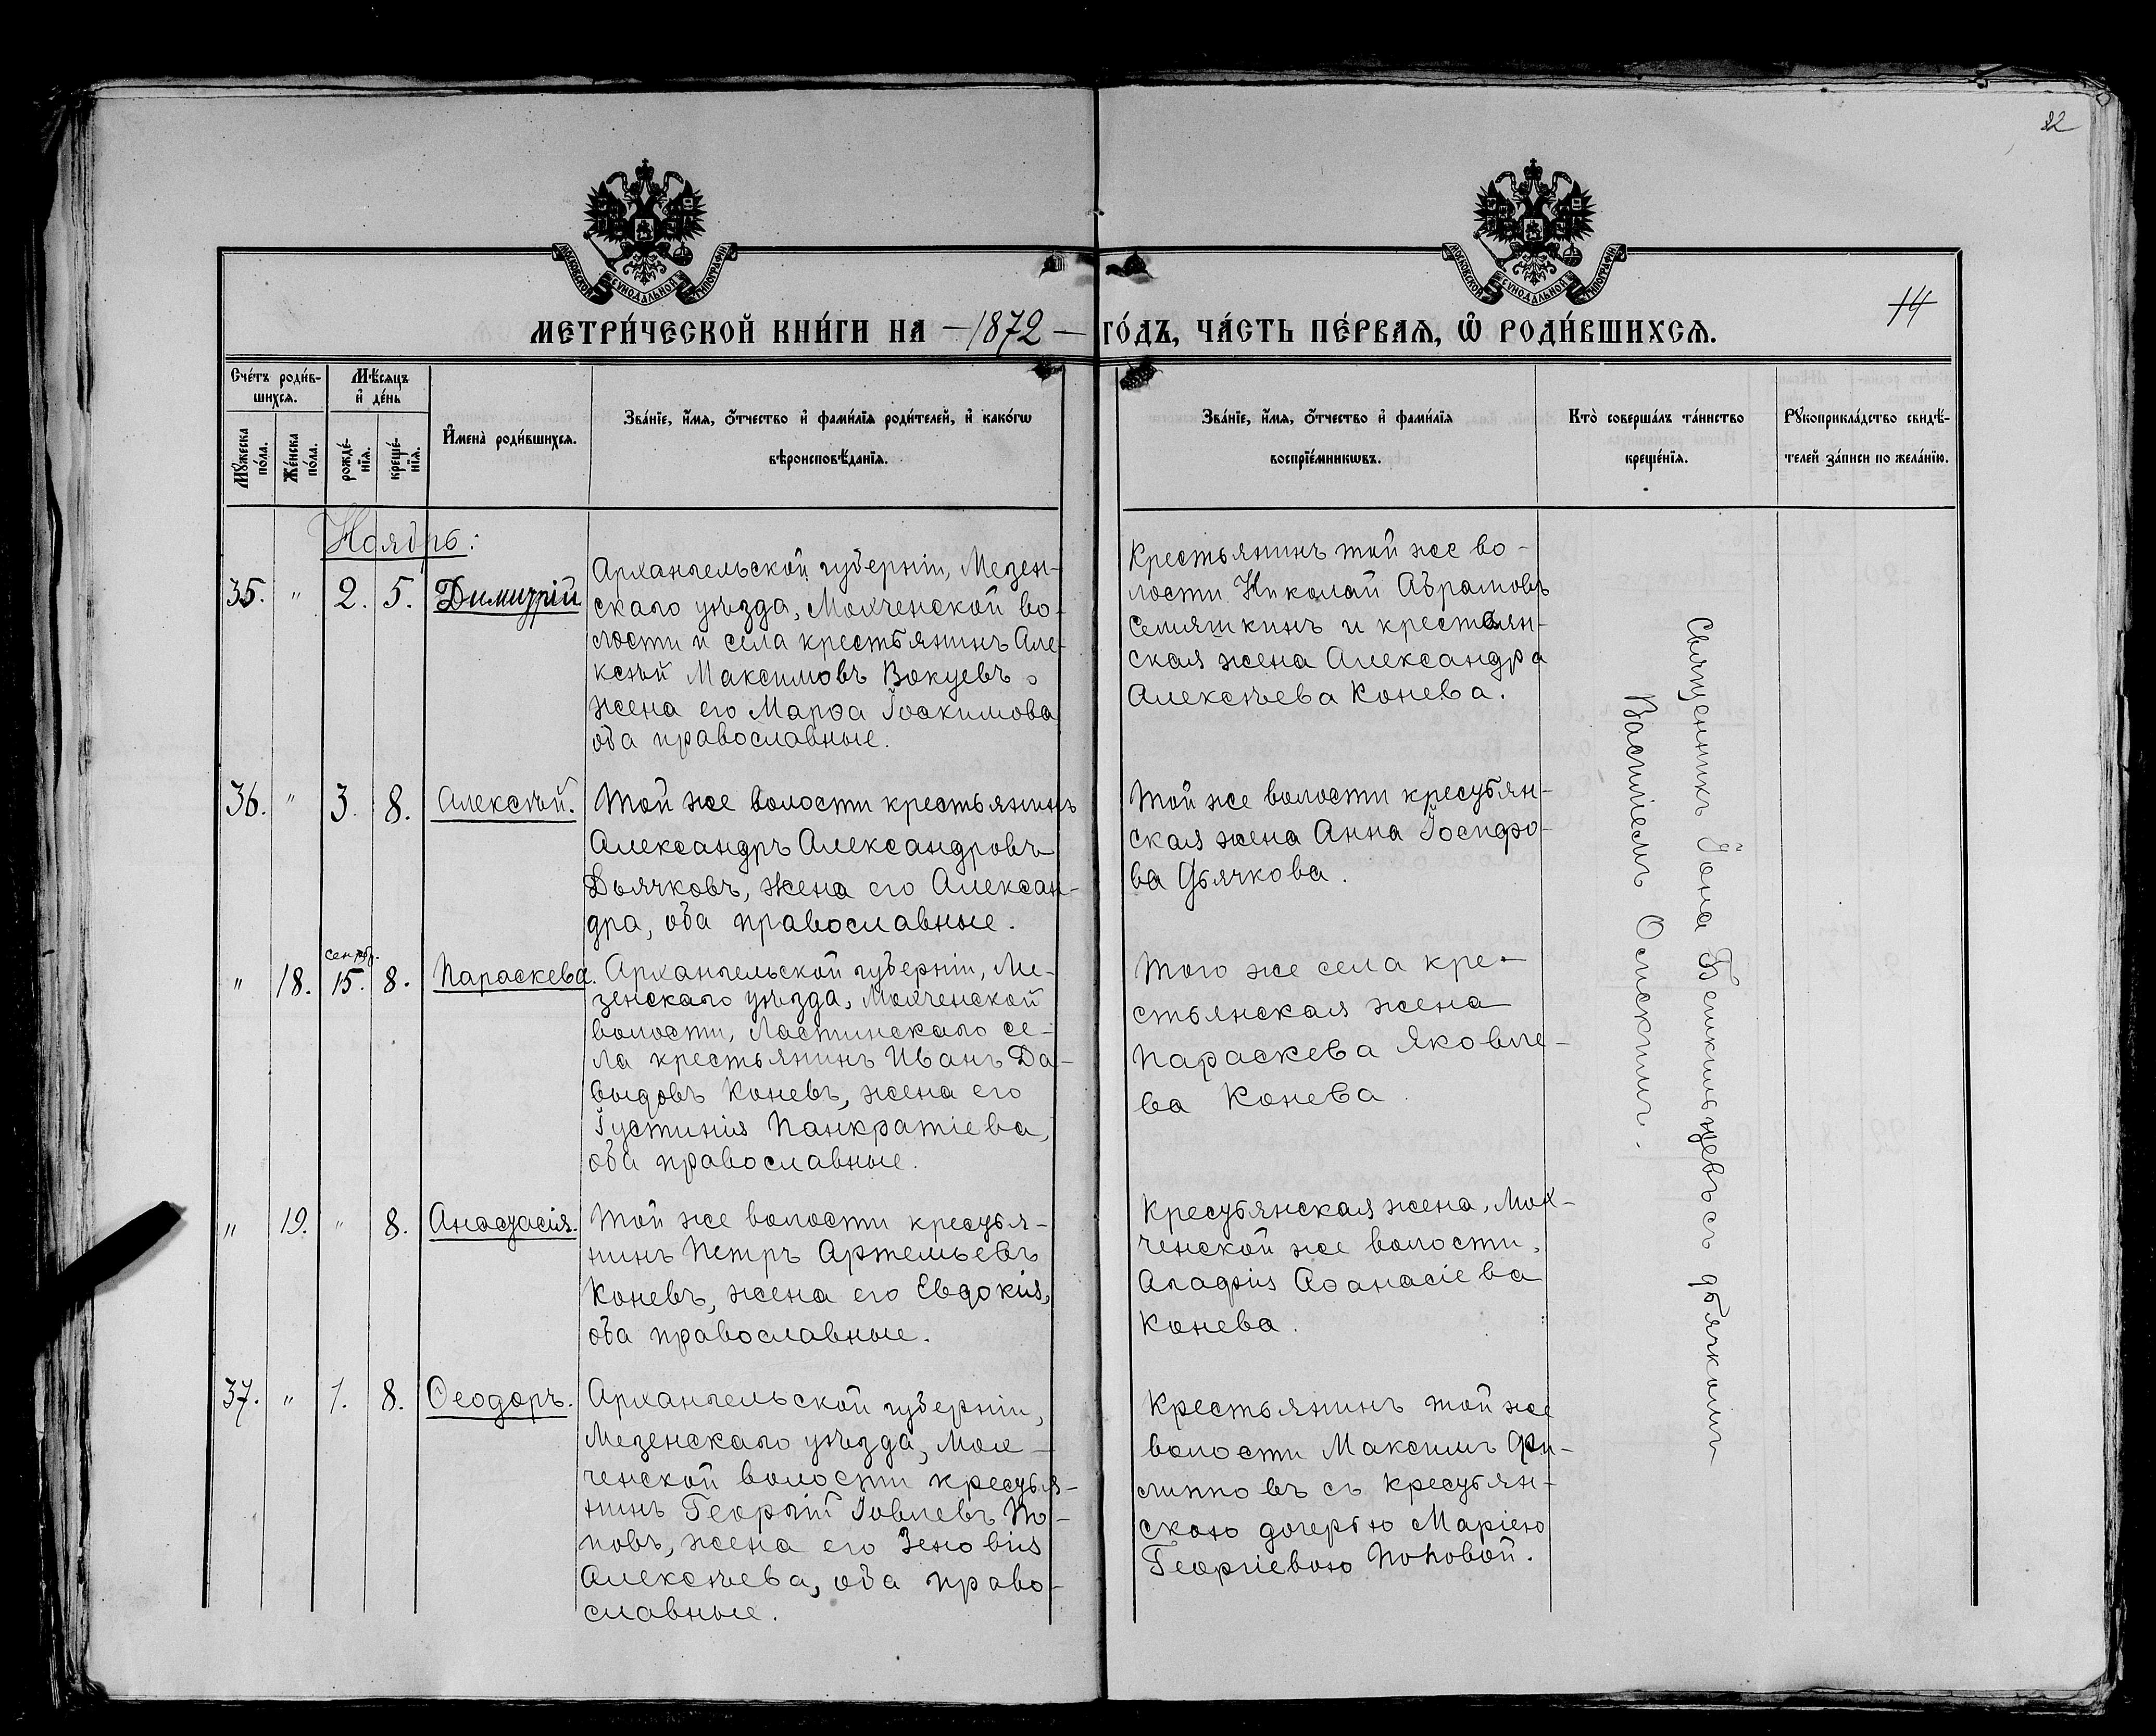 22
МОСКОВСКОЙ СѴНОДАЛЬНОЙ ТИПОГРАФІИ
МОСКОВСКОЙ СѴНОДАЛЬНОЙ ТИПОГРАФІИ
14
МЕТРИ́ЧЕСКОЙ КНИ́ГИ НА —1872— ГО́ДЪ, ЧА́СТЬ ПЕ́РВАЯ, Ѡ҆ РОДИ́ВШИХСЯ.
Сче́тъ роди́в-
шихся.
Мꙋ́жеска
по́ла.
Же́нска
по́ла.
Мѣ́сяцъ
и҆ де́нь
рожде́-
нїя.
креще́-
нїя.
И҆мена̀ роди́вшихся.
Зва́нїе, и҆́мя, ѻ҆́тчество и҆ фами́лїя роди́телей, и҆ како́гѡ
вѣроисповѣ́данїя.
Зва́нїе, и҆́мя, ѻ҆́тчество и҆ фами́лїя
воспрїе́мникѡвъ.
Кто̀ соверша́лъ та́инство
креще́нїя.
Рꙋкоприкла́дство свидѣ́-
телей за́писи по жела́нїю.
Ноябрь:
35. " 2. 5. Димитрій
Архангельской губерніи, Мезен-
скаго уѣзда, Мохченской во-
лости и села крестьянинъ Але-
ксѣй Максимовъ Вокуевъ
жена его Марѳа Іоакимова
оба православные.
Крестьянинъ той же во-
лости Николай Абрамовъ
Семяшкинъ и крестьян-
ская жена Александра
Алексѣева Конева.
36. " 3. 8. Алексѣй.
Той же волости крестьянинъ
Александръ Александровъ
Дьячковъ, жена его Алексан-
дра, оба православные.
Той же волости крестьян-
ская жена Анна Іосифо-
ва Дьячкова.
" 18. сентбр. 15. 8. Параскева.
Архангельской губерніи, Ме-
зенскаго уѣзда, Мохченской
волости, Ластинскаго се-
ла крестьянинъ Иванъ Да-
выдовъ Коневъ, жена его
Іустинія Панкратіева,
оба православные.
Того же села кре-
стьянская жена
Параскева Яковле-
ва Конева
" 19. " 8. Анастасія.
Той же волости крестья-
нинъ Петръ Артемьевъ
Коневъ, жена его Евдокия,
оба православные.
Крестьянская жена, Мох-
ченской же волости,
Агафия Аѳанасіева
Конева.
37. " 1. 8. Ѳеодоръ.
Архангельской губерніи,
Мезенскаго уѣзда, Мох-
ченской волости крестья-
нинъ Георгій Іовлевъ По-
повъ, жена его Зеновия
Алексѣева, оба право-
славные.
Крестьянинъ той же
волости Максимъ Фи-
липповъ съ крестьян-
скою дочерью Маріею
Георгіевою Поповой.
Священникъ Іона съ дьячкомъ
Василіемъ